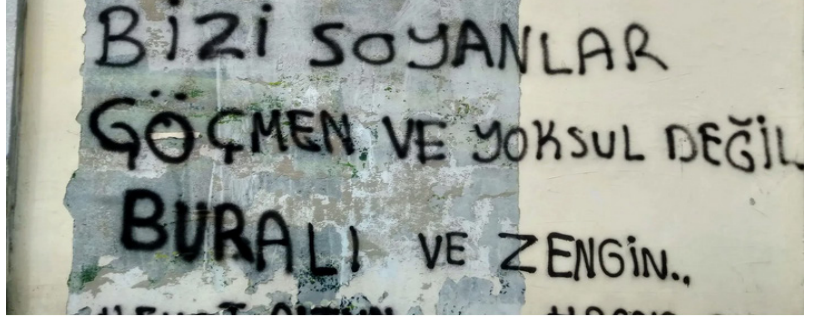 BİZİ SOYANLAR
GÖÇMEN VE YOKSUL DEĞİL
BURALI VE ZENGİN..